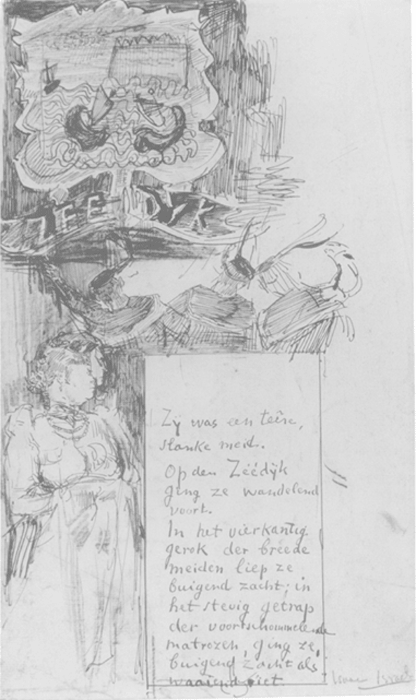 ZEEDYK
Zÿ was een teêre,
slanke meid.
Op den Zéédÿk
ging ze wandelend
voort.
In het vierkantig
gerok der breede
meiden liep ze
buigend zacht; in
het stevig getrap
der voortschommelende
matrozen, ging ze,
buigend zacht als
waaiend riet